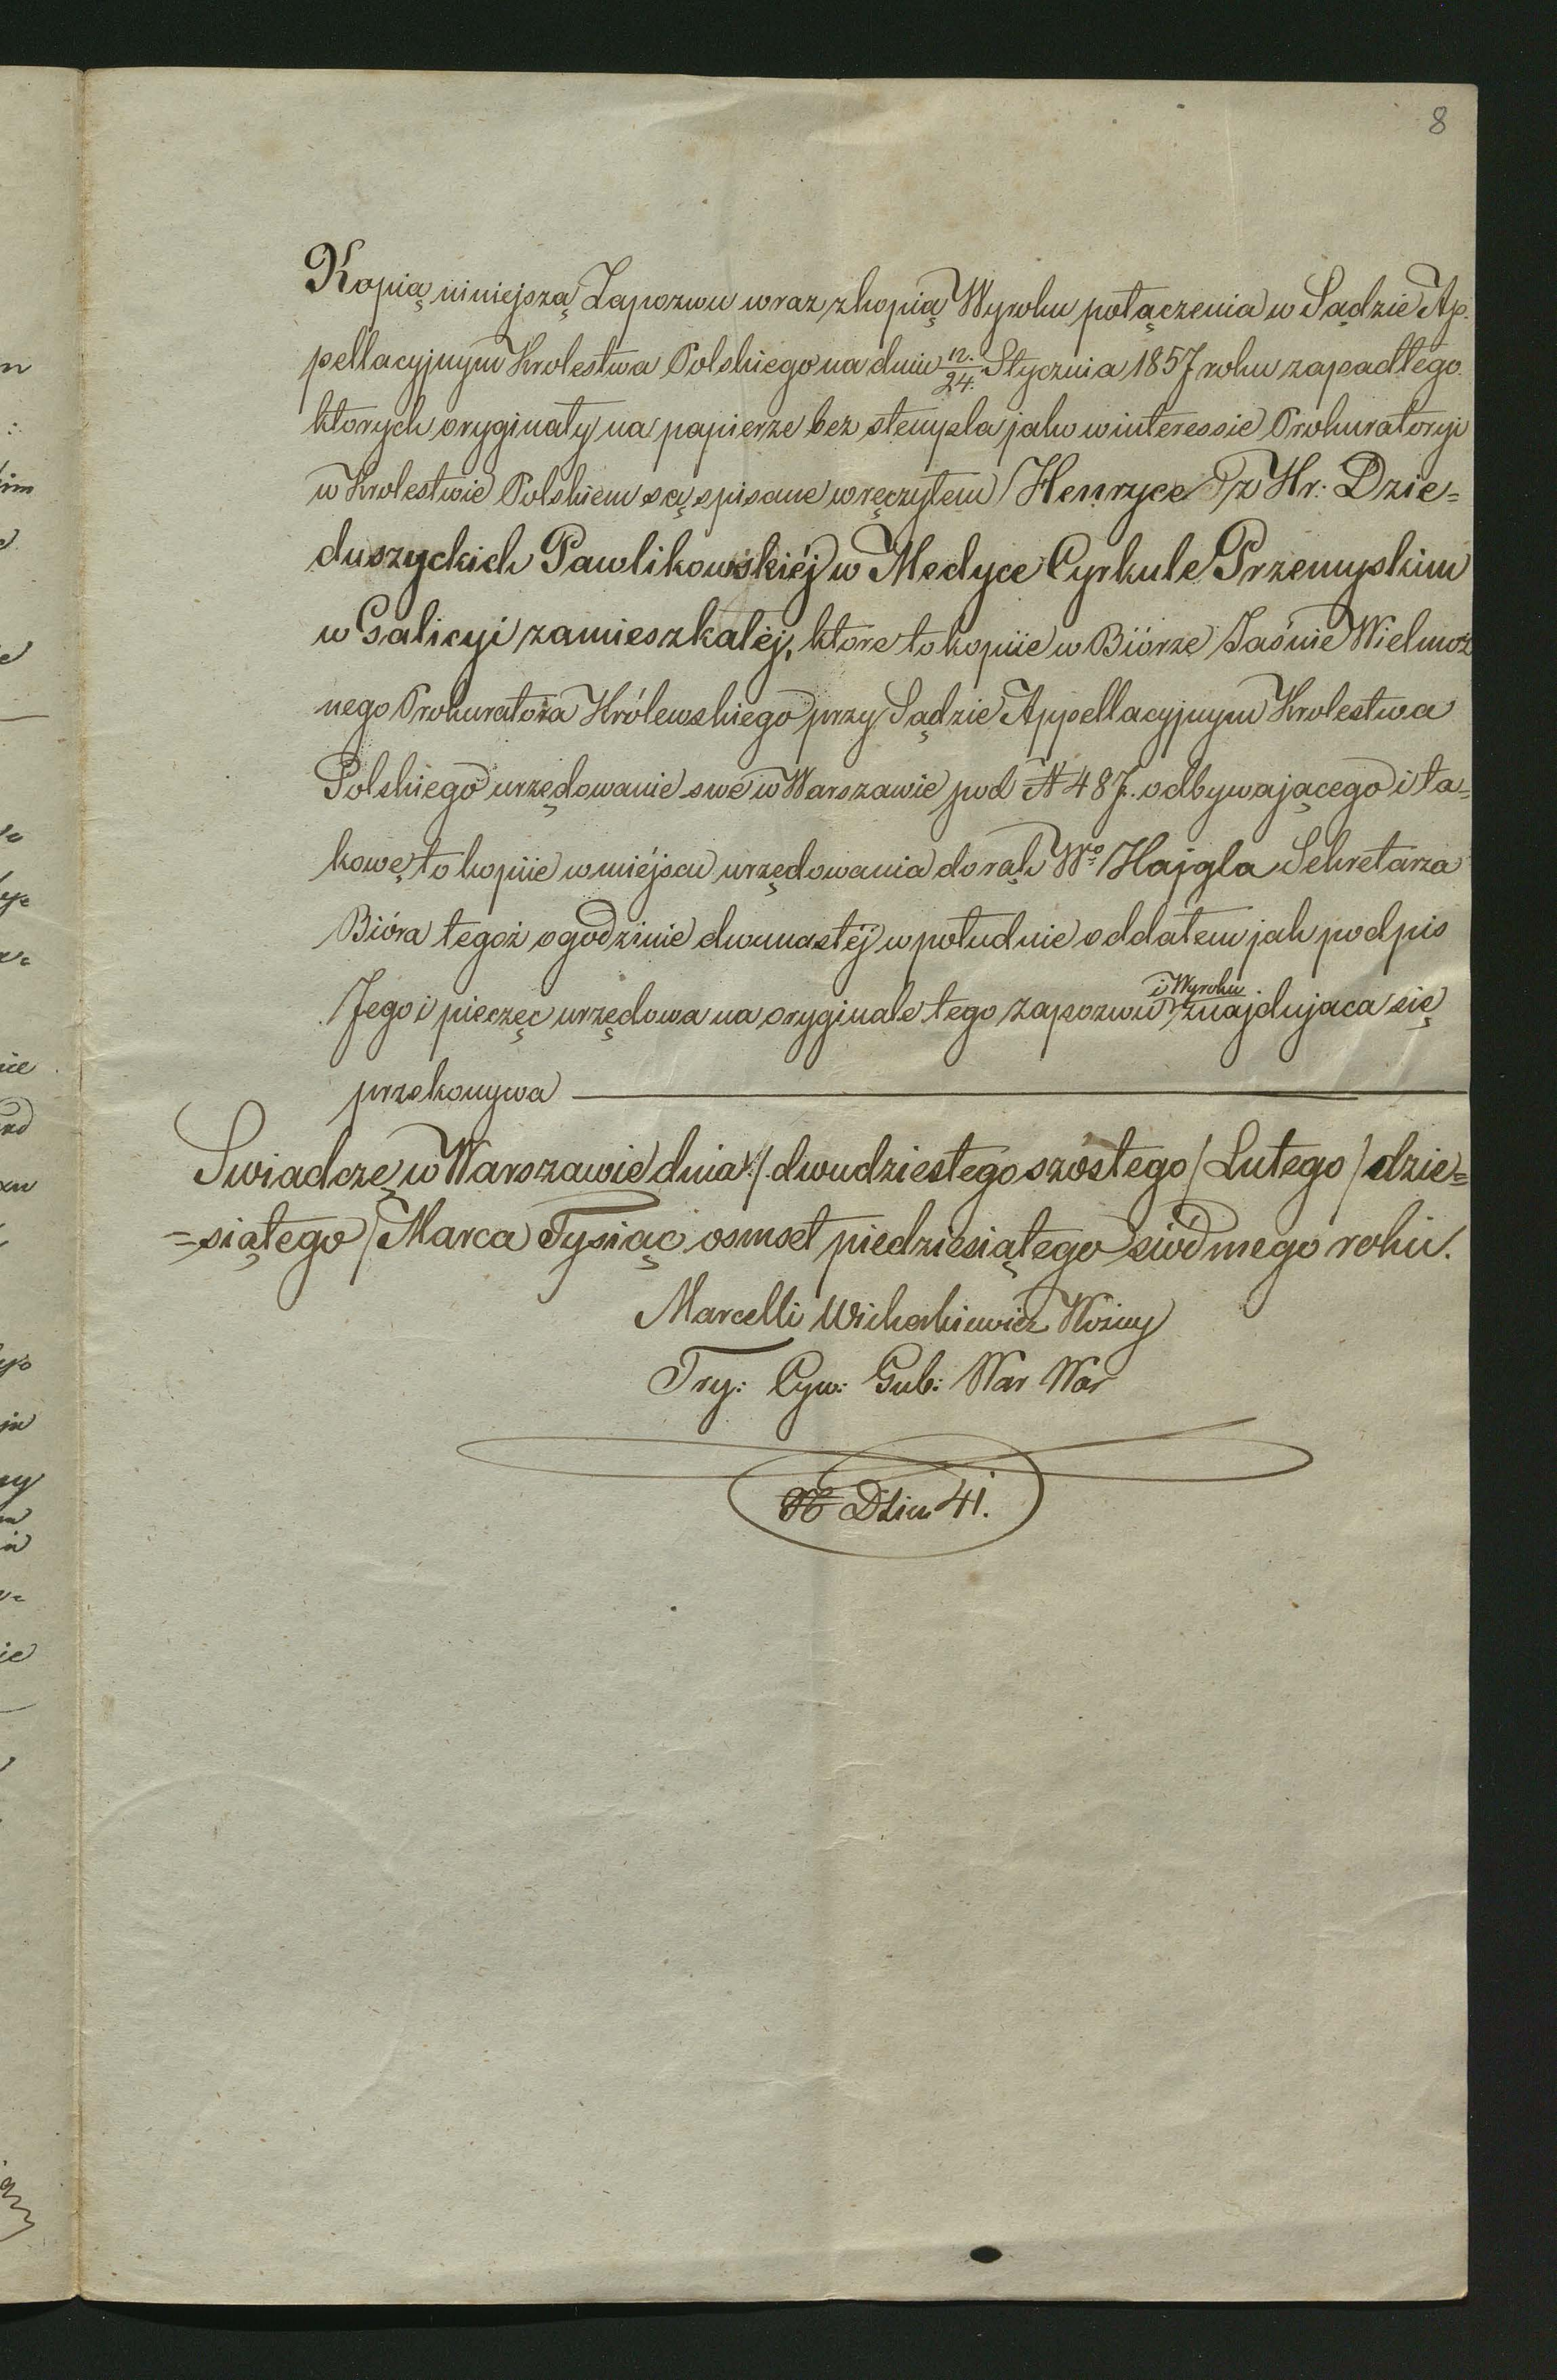 8
Kopią niniejszą Zapozwu wraz z kopią Wyroku połączenia w Sądzie Ap.
pellacyjnym Krolestwa Polskiego na dniu 12./24. Stycznia 1857 roku zapadłego
ktorych oryginały na papierze bez stempla jako w interessie Prokuratoryi
w Krolestwie Polskiem są spisane wręczyłem Henryce z Hr. Dzie=
duszyckich Pawlikowskiéj w Medyce Cyrkule Przemyskim
w Galicyi zamieszkałéj, ktore to kopiie w Biórze Jaśnie Wielmoż
nego Prokuratora Królewskiego przy Sądzie Appellacyjnym Krolestwa
Polskiego urzędowanie swe w Warszawie pod N 487. odbywającego i ta=
kowe to kopiie w miéjscu urzędowania do rąk Wo Hajgla Sekretarza
Bióra tegoż o godzinie dwunastéj w południe oddałem jak podpis
i Wyroku
Jego i pieczęc urzędowa na oryginale tego zapozwu znajdujaca się
przekonywa
Swiadczę w Warszawie dnia dwudziestego szóstego / Lutego / dzie=
=siątego / Marca Tysiąc osmset piedziesiątego siódmego roku.
Marcelli Wicherkiewicz Woźny
Try: Cyw: Gub: War War
N Dzien 41.